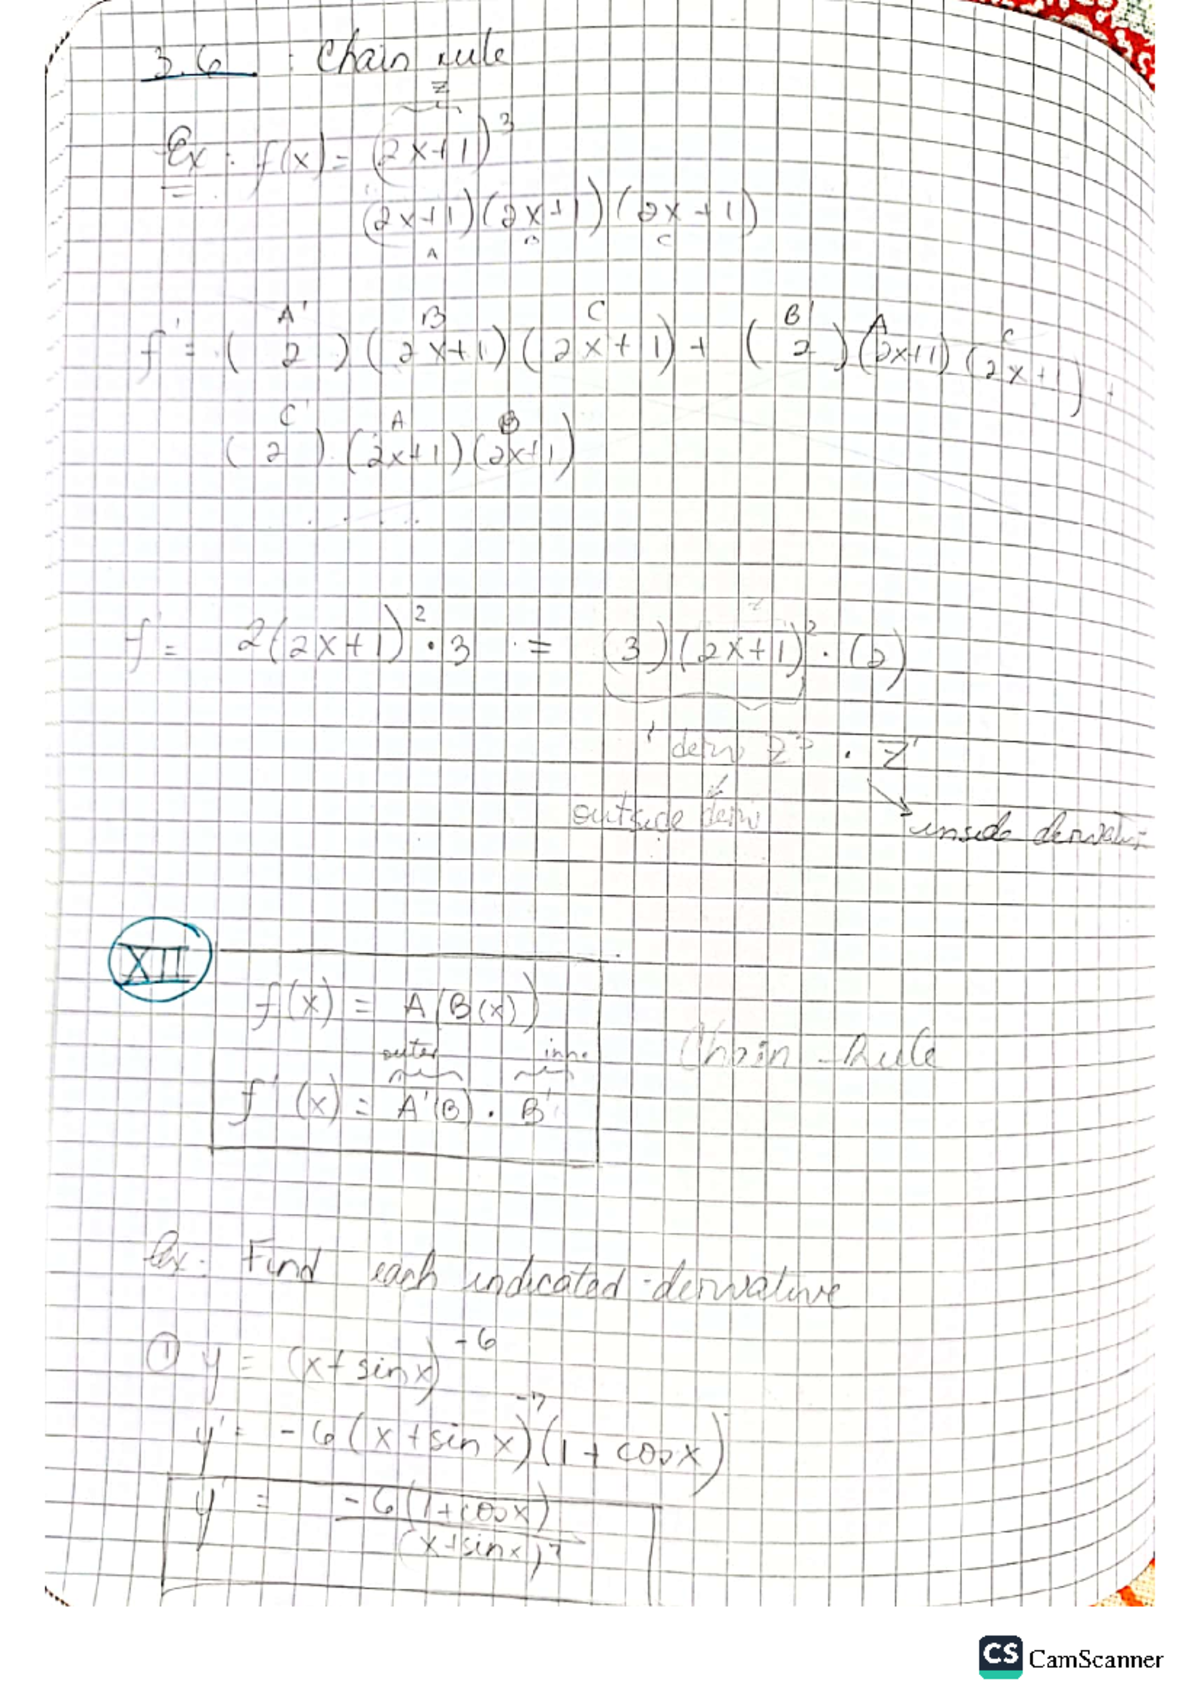 3.6 : Chain rule
z
Ex : f(x) = (2x+1)^3
(2x+1)(2x+1)(2x+1)
A B C
A' B C B' A C
f' = (2)(2x+1)(2x+1) + (2)(2x+1)(2x+1) +
C' A B
(2)(2x+1)(2x+1)
f' = 2(2x+1)^2 · 3 = (3)(2x+1)^2 · (2)
deriv z^3 · z'
outside deriv
inside derivativ
XII
f(x) = A(B(x))
outer inne
Chain Rule
f'(x) = A'(B) · B'
Ex: Find each indicated derivative
① y = (x+sinx)^-6
y' = -6(x+sinx)^-7(1+cosx)
y' = -6(1+cosx)
(x+sinx)^7
CS CamScanner